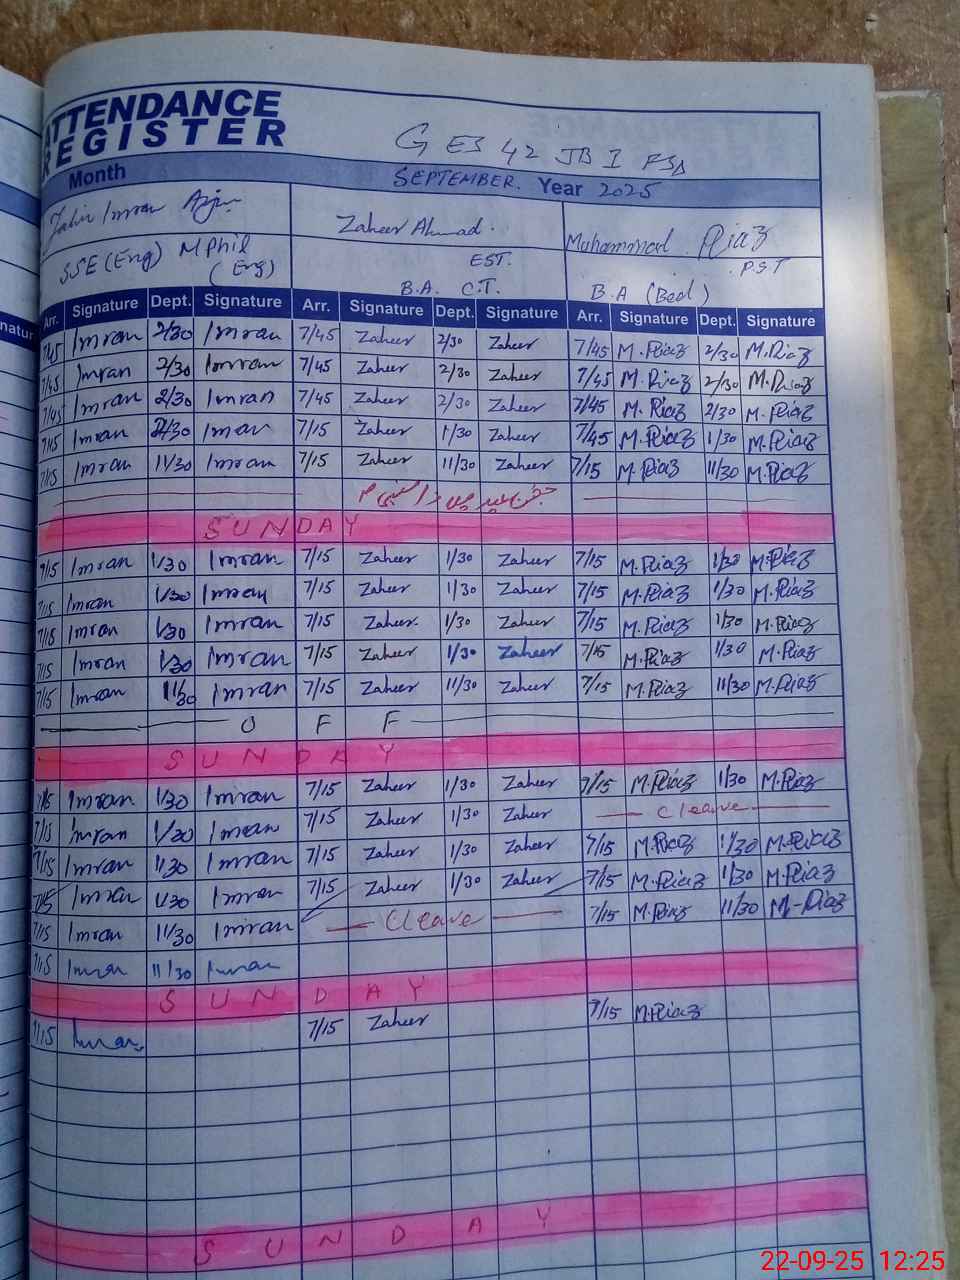 ATTENDANCE
REGISTER
G ES 42 JB I FSD
Month SEPTEMBER. Year 2025
Imran Zaheer Ahmad. Muhammad Riaz
SSE (Eng) M Phil (Eng) EST. P.S.T
B.A. C.T. B.A (Bed)
Arr. Signature Dept. Signature Arr. Signature Dept. Signature Arr. Signature Dept. Signature
7/45 Imran 2/30 Imran 7/45 Zaheer 2/30 Zaheer 7/45 M.Riaz 2/30 M.Riaz
7/45 Imran 2/30 Imran 7/45 Zaheer 2/30 Zaheer 7/45 M.Riaz 2/30 M.Riaz
7/45 Imran 2/30 Imran 7/45 Zaheer 2/30 Zaheer 7/45 M.Riaz 2/30 M.Riaz
7/15 Imran 2/30 Imran 7/15 Zaheer 1/30 Zaheer 7/45 M.Riaz 1/30 M.Riaz
7/15 Imran 11/30 Imran 7/15 Zaheer 11/30 Zaheer 7/15 M.Riaz 11/30 M.Riaz
SUNDAY
7/15 Imran 1/30 Imran 7/15 Zaheer 1/30 Zaheer 7/15 M.Riaz 1/30 M.Riaz
7/15 Imran 1/30 Imran 7/15 Zaheer 1/30 Zaheer 7/15 M.Riaz 1/30 M.Riaz
7/15 Imran 1/30 Imran 7/15 Zaheer 1/30 Zaheer 7/15 M.Riaz 1/30 M.Riaz
7/15 Imran 1/30 Imran 7/15 Zaheer 1/30 Zaheer 7/15 M.Riaz 1/30 M.Riaz
7/15 Imran 11/30 Imran 7/15 Zaheer 11/30 Zaheer 7/15 M.Riaz 11/30 M.Riaz
O F F
SUNDAY
7/15 Imran 1/30 Imran 7/15 Zaheer 1/30 Zaheer 7/15 M.Riaz 1/30 M.Riaz
7/15 Imran 1/30 Imran 7/15 Zaheer 1/30 Zaheer Cleave
7/15 Imran 1/30 Imran 7/15 Zaheer 1/30 Zaheer 7/15 M.Riaz 1/30 M.Riaz
7/15 Imran 1/30 Imran 7/15 Zaheer 1/30 Zaheer 7/15 M.Riaz 1/30 M.Riaz
7/15 Imran 11/30 Imran Cleave 7/15 M.Riaz 11/30 M-Riaz
7/15 Imran 11/30 Imran
SUNDAY
7/15 Imran 7/15 Zaheer 7/15 M.Riaz
SUNDAY
22-09-25 12:25